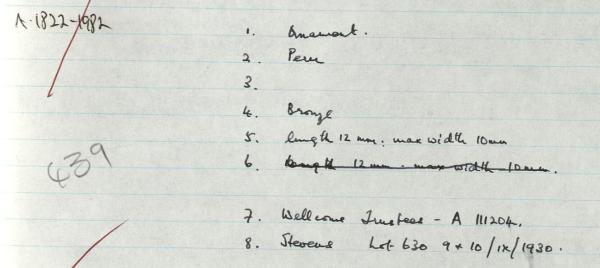 A.1822-1982
1. Ornament.
2. Peru
3.
4. Bronze
5. length 12 mm. max width 10mm
6. length 12 mm. max width 10mm.
439
7. Wellcome Trustees - A 111204.
8. Stevens Lot 630 9 + 10/ix/1930.